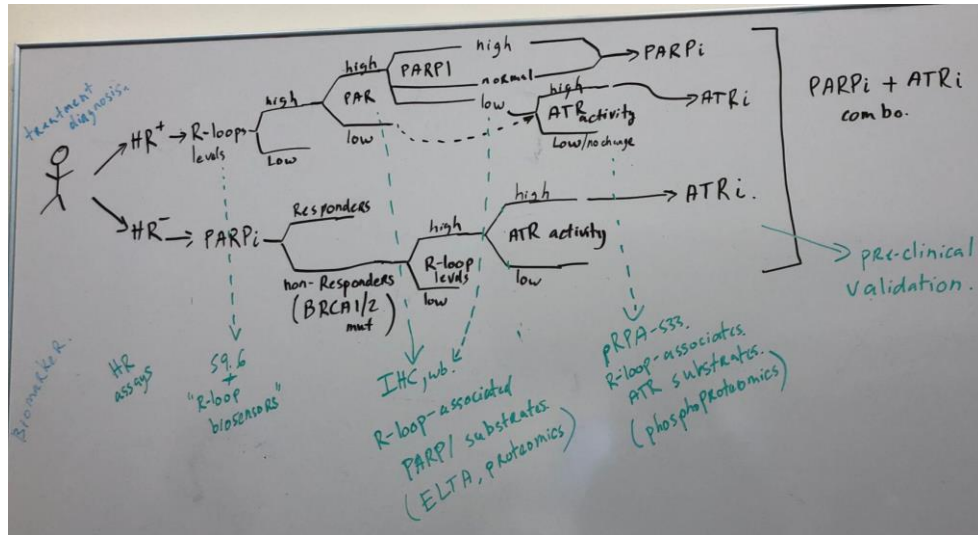 treatment
diagnosis.
HR+ → R-loops
levels
high
Low
high
PAR
low
PARP1
high
normal
low
PARPi
high
ATR
activity
Low/no change
ATRi
PARPi + ATRi
combo.
HR- → PARPi
Responders
non-Responders
(BRCA1/2
mut)
high
R-loop
levels
low
high
ATR activity
low
ATRi.
pre-clinical
validation.
Biomarker.
HR
assays
S9.6
+
"R-loop
biosensors"
IHC, wb.
R-loop-associated
PARP1 substrates
(ELTA, proteomics)
pRPA-S33.
R-loop-associates.
ATR substrates.
(phosphoproteomics)